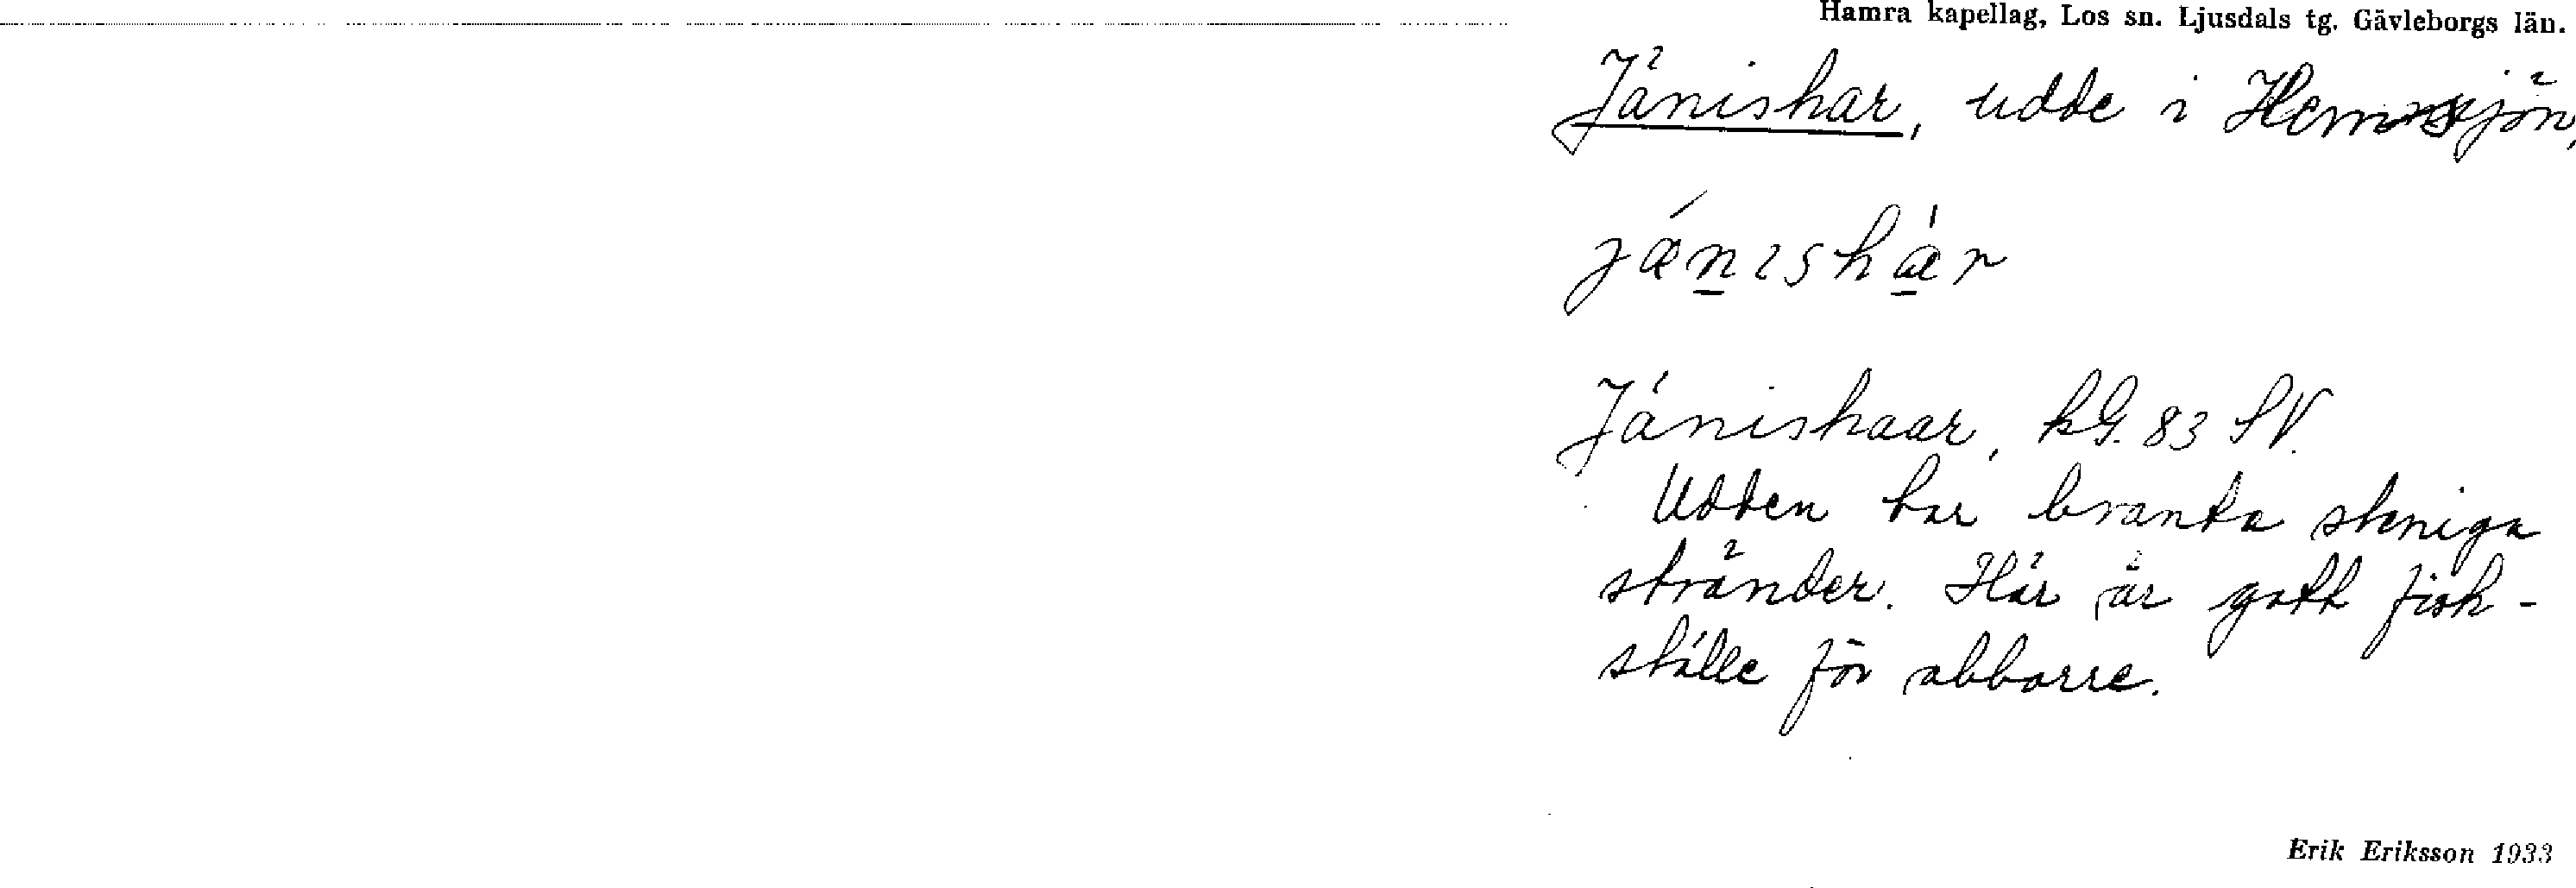 Hamra kapellag, Los sn. Ljusdals tg. Gävleborgs län.
Jänishar, udde i Hemsjön,
jænishàr
Jänishaar, kG. 83 SV.
Udden har branta steniga
stränder. Här är gott fisk-
ställe för abborre.
Erik Eriksson 1933